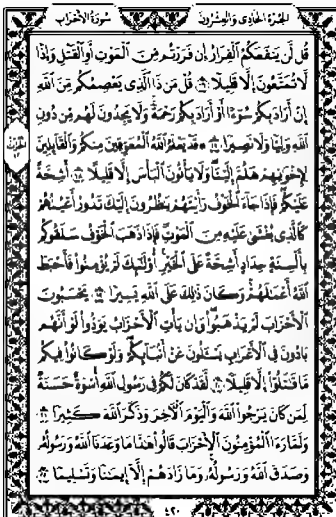 الجزء الحادي والعشرون سورة الأحزاب
قُل لَّن يَنفَعَكُمُ ٱلْفِرَارُ إِن فَرَرْتُم مِّنَ ٱلْمَوْتِ أَوِ ٱلْقَتْلِ وَإِذًا
لَّا تُمَتَّعُونَ إِلَّا قَلِيلًا ١٦ قُلْ مَن ذَا ٱلَّذِى يَعْصِمُكُم مِّنَ ٱللَّهِ
إِنْ أَرَادَ بِكُمْ سُوٓءًا أَوْ أَرَادَ بِكُمْ رَحْمَةً ۚ وَلَا يَجِدُونَ لَهُم مِّن دُونِ
ٱللَّهِ وَلِيًّا وَلَا نَصِيرًا ١٧ ۞ قَدْ يَعْلَمُ ٱللَّهُ ٱلْمُعَوِّقِينَ مِنكُمْ وَٱلْقَآئِلِينَ
لِإِخْوَٰنِهِمْ هَلُمَّ إِلَيْنَا ۖ وَلَا يَأْتُونَ ٱلْبَأْسَ إِلَّا قَلِيلًا ١٨ أَشِحَّةً
عَلَيْكُمْ ۖ فَإِذَا جَآءَ ٱلْخَوْفُ رَأَيْتَهُمْ يَنظُرُونَ إِلَيْكَ تَدُورُ أَعْيُنُهُمْ
كَٱلَّذِى يُغْشَىٰ عَلَيْهِ مِنَ ٱلْمَوْتِ ۖ فَإِذَا ذَهَبَ ٱلْخَوْفُ سَلَقُوكُم
بِأَلْسِنَةٍ حِدَادٍ أَشِحَّةً عَلَى ٱلْخَيْرِ ۚ أُو۟لَٰٓئِكَ لَمْ يُؤْمِنُوا۟ فَأَحْبَطَ
ٱللَّهُ أَعْمَٰلَهُمْ ۚ وَكَانَ ذَٰلِكَ عَلَى ٱللَّهِ يَسِيرًا ١٩ يَحْسَبُونَ
ٱلْأَحْزَابَ لَمْ يَذْهَبُوا۟ ۖ وَإِن يَأْتِ ٱلْأَحْزَابُ يَوَدُّوا۟ لَوْ أَنَّهُم
بَادُونَ فِى ٱلْأَعْرَابِ يَسْـَٔلُونَ عَنْ أَنۢبَآئِكُمْ ۖ وَلَوْ كَانُوا۟ فِيكُم
مَّا قَٰتَلُوٓا۟ إِلَّا قَلِيلًا ٢٠ لَّقَدْ كَانَ لَكُمْ فِى رَسُولِ ٱللَّهِ أُسْوَةٌ حَسَنَةٌ
لِّمَن كَانَ يَرْجُوا۟ ٱللَّهَ وَٱلْيَوْمَ ٱلْءَاخِرَ وَذَكَرَ ٱللَّهَ كَثِيرًا ٢١
وَلَمَّا رَءَا ٱلْمُؤْمِنُونَ ٱلْأَحْزَابَ قَالُوا۟ هَٰذَا مَا وَعَدَنَا ٱللَّهُ وَرَسُولُهُۥ
وَصَدَقَ ٱللَّهُ وَرَسُولُهُۥ ۚ وَمَا زَادَهُمْ إِلَّآ إِيمَٰنًا وَتَسْلِيمًا ٢٢
٤٢٠